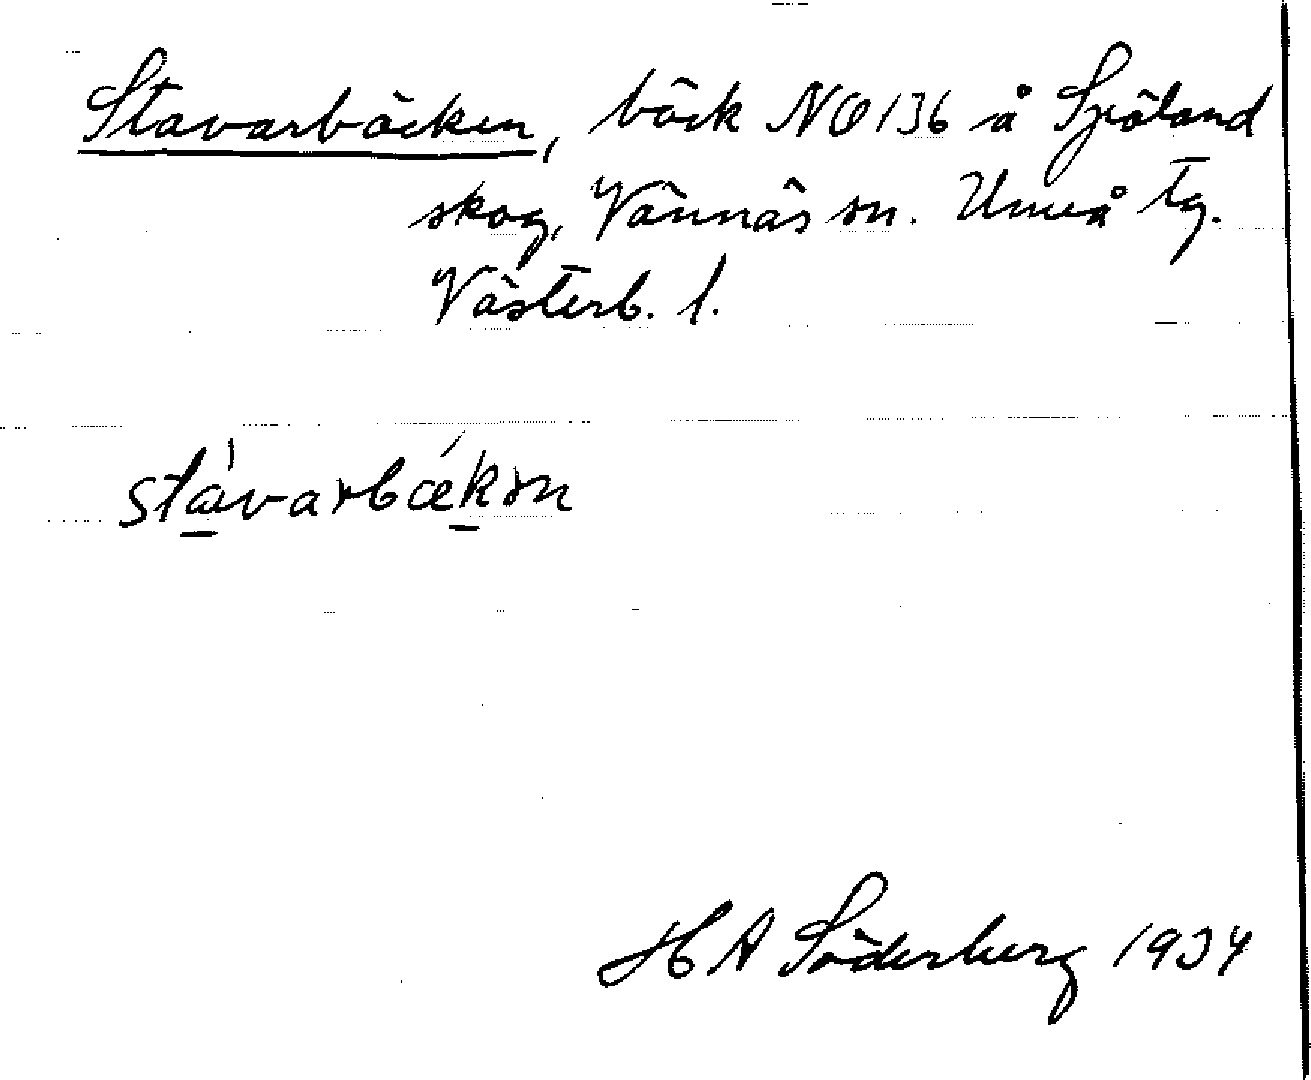 Stavarbäcken, bäck NO 136 å Sjöland
skog, Vännäs sn. Umeå tg.
Västerb. l.
stávarbǽkən
H A Söderberg 1934